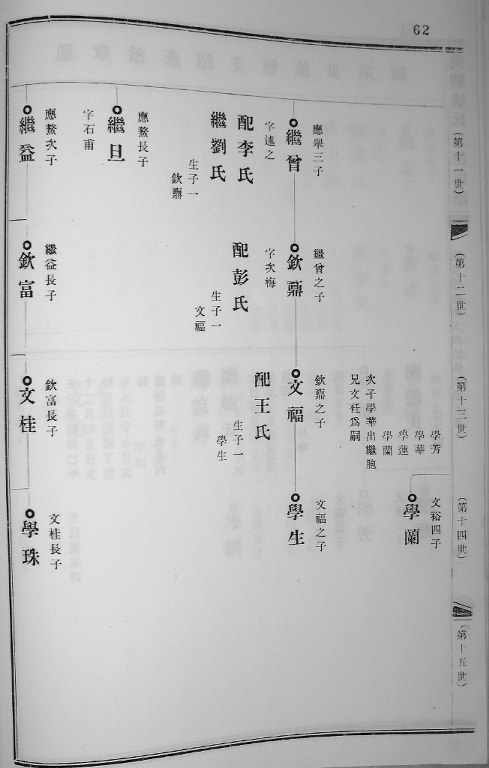 62
(第十一世)
(第十二世)
(第十三世)
(第十四世)
(第十五世)
學芳
學華
學蓮
學蘭
次子學華出繼胞
兄文任爲嗣
文裕四子
學蘭
應舉三子
繼曾
字述之
配李氏
繼劉氏
生子一
欽鼐
繼曾之子
欽鼐
字次梅
配彭氏
生子一
文福
欽鼐之子
文福
配王氏
生子一
學生
文福之子
學生
應鰲長子
繼旦
字石甫
應鰲次子
繼益
繼益長子
欽富
欽富長子
文桂
文桂長子
學珠